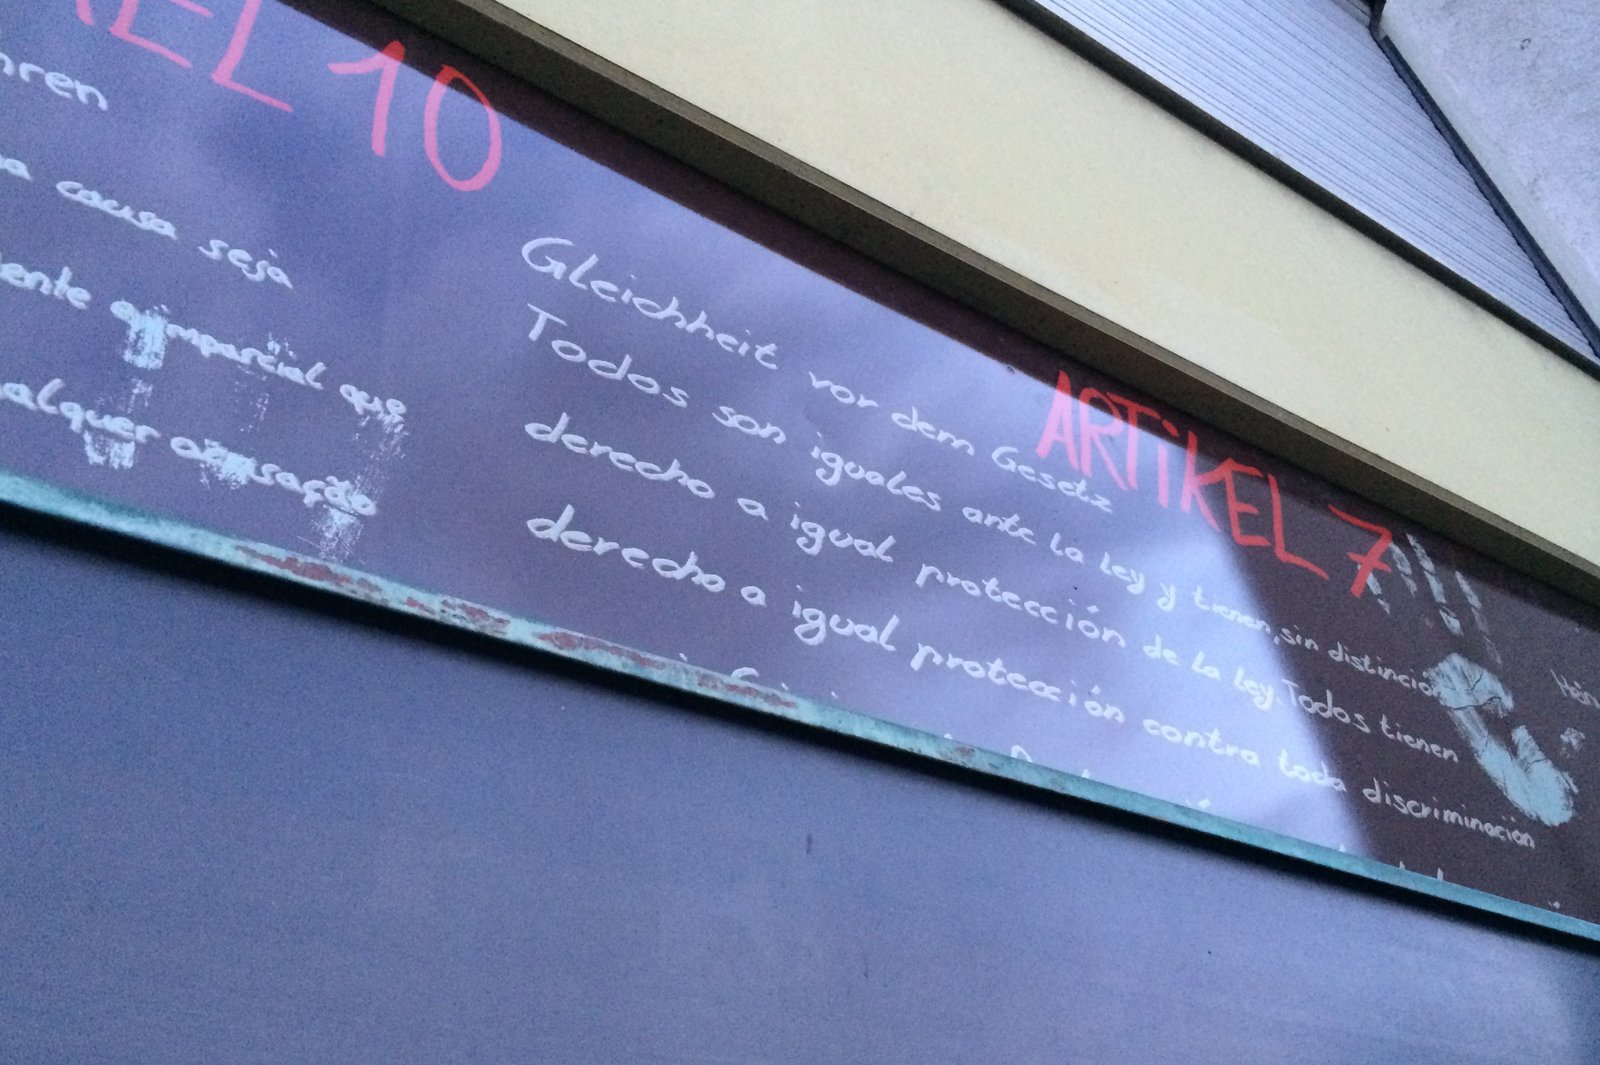 EL 10
hren
causa seja
ente e imparcial que
alquer acusação
ARTiKEL 7
Gleichheit vor dem Gesetz
Todos son iguales ante la ley y tienen, sin distinción
derecho a igual protección de la ley. Todos tienen
derecho a igual protección contra toda discriminación